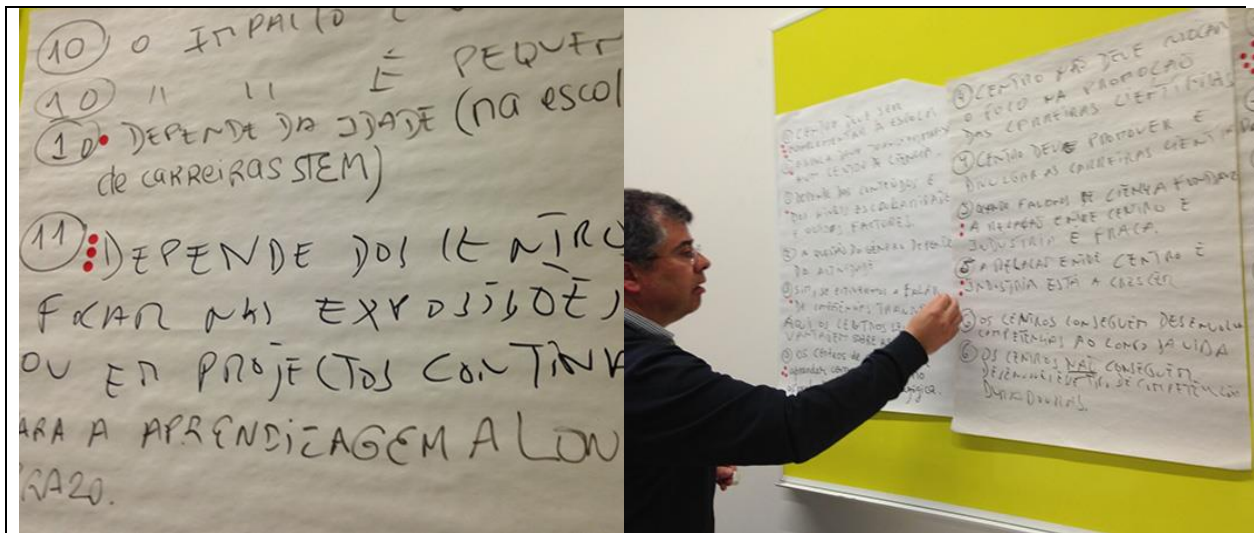 10 O IMPACTO
10 " " É PEQUEN
10 DEPENDE DA IDADE (na escol
de CARREIRAS STEM)
11 DEPENDE DOS CENTRO
FOCAR NAS EXPOSIÇÕES
OU EM PROJECTOS CONTINU
ARA A APRENDIZAGEM A LON
RAZO.
1 CENTRO DEVE SER
COMPLEMENTAR À ESCOLA.
ESCOLA
NUM CENTRO DE CIÊNCIA.
2 DEPENDE DOS CONTEÚDOS E
DOS NÍVEIS ESCOLARIDADE
E OUTROS FACTORES.
3 A QUESTÃO DO GÉNERO DEPENDE
DA ACTIVIDADE
3 SIM, SE ESTIVERMOS A FALAR
DE
AQUI OS CENTROS
VANTAGEM SOBRE AS
3 OS CENTROS DE
aprender com
4 CENTRO NÃO DEVE COLOCAR
O FOCO NA PROMOÇÃO
DAS CARREIRAS CIENTÍFICAS
4 CENTRO DEVE PROMOVER E
DIVULGAR AS CARREIRAS CIENTÍF
5 QUANDO FALAMOS DE CIÊNCIA FUNDAM
A RELAÇÃO ENTRE CENTRO E
INDÚSTRIA É FRACA.
5 A RELAÇÃO ENTRE CENTRO E
INDÚSTRIA ESTÁ A CRESCER
6 OS CENTROS CONSEGUEM DESENVOLV
COMPETÊNCIAS AO LONGO DA VIDA
6 OS CENTROS NÃO CONSEGUEM
DE COMPETÊNCIAS
DURADOURAS.